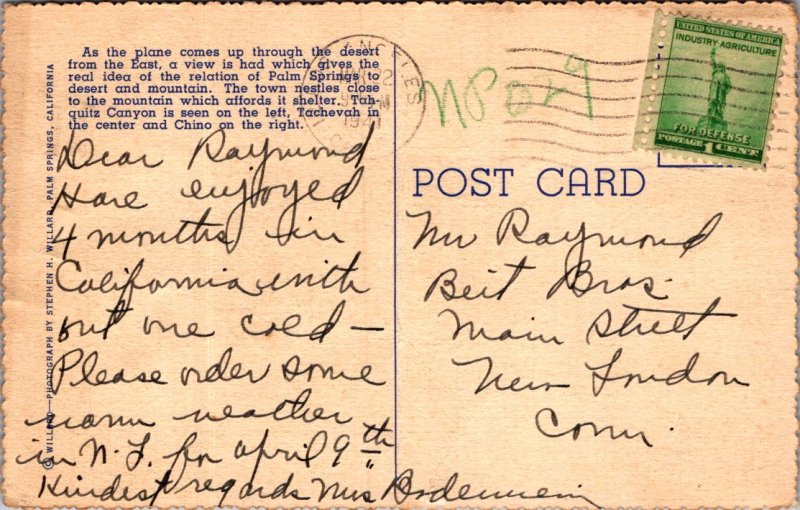 As the plane comes up through the desert
from the East, a view is had which gives the
real idea of the relation of Palm Springs to
desert and mountain. The town nestles close
to the mountain which affords it shelter. Tah-
quitz Canyon is seen on the left, Tachevah in
the center and Chino on the right.
© WILLARD—PHOTOGRAPH BY STEPHEN H. WILLARD, PALM SPRINGS, CALIFORNIA
Dear Raymond
Have enjoyed
4 months in
California with
out one cold —
Please order some
warm weather
in N.J. for April 9th
Kindest regards Mrs
ANGELES
1941
NP
29
UNITED STATES OF AMERICA
INDUSTRY-AGRICULTURE
FOR DEFENSE
POSTAGE 1 CENT
POST CARD
Mr Raymond
Beit Bros.
Main Street
New London
Conn.